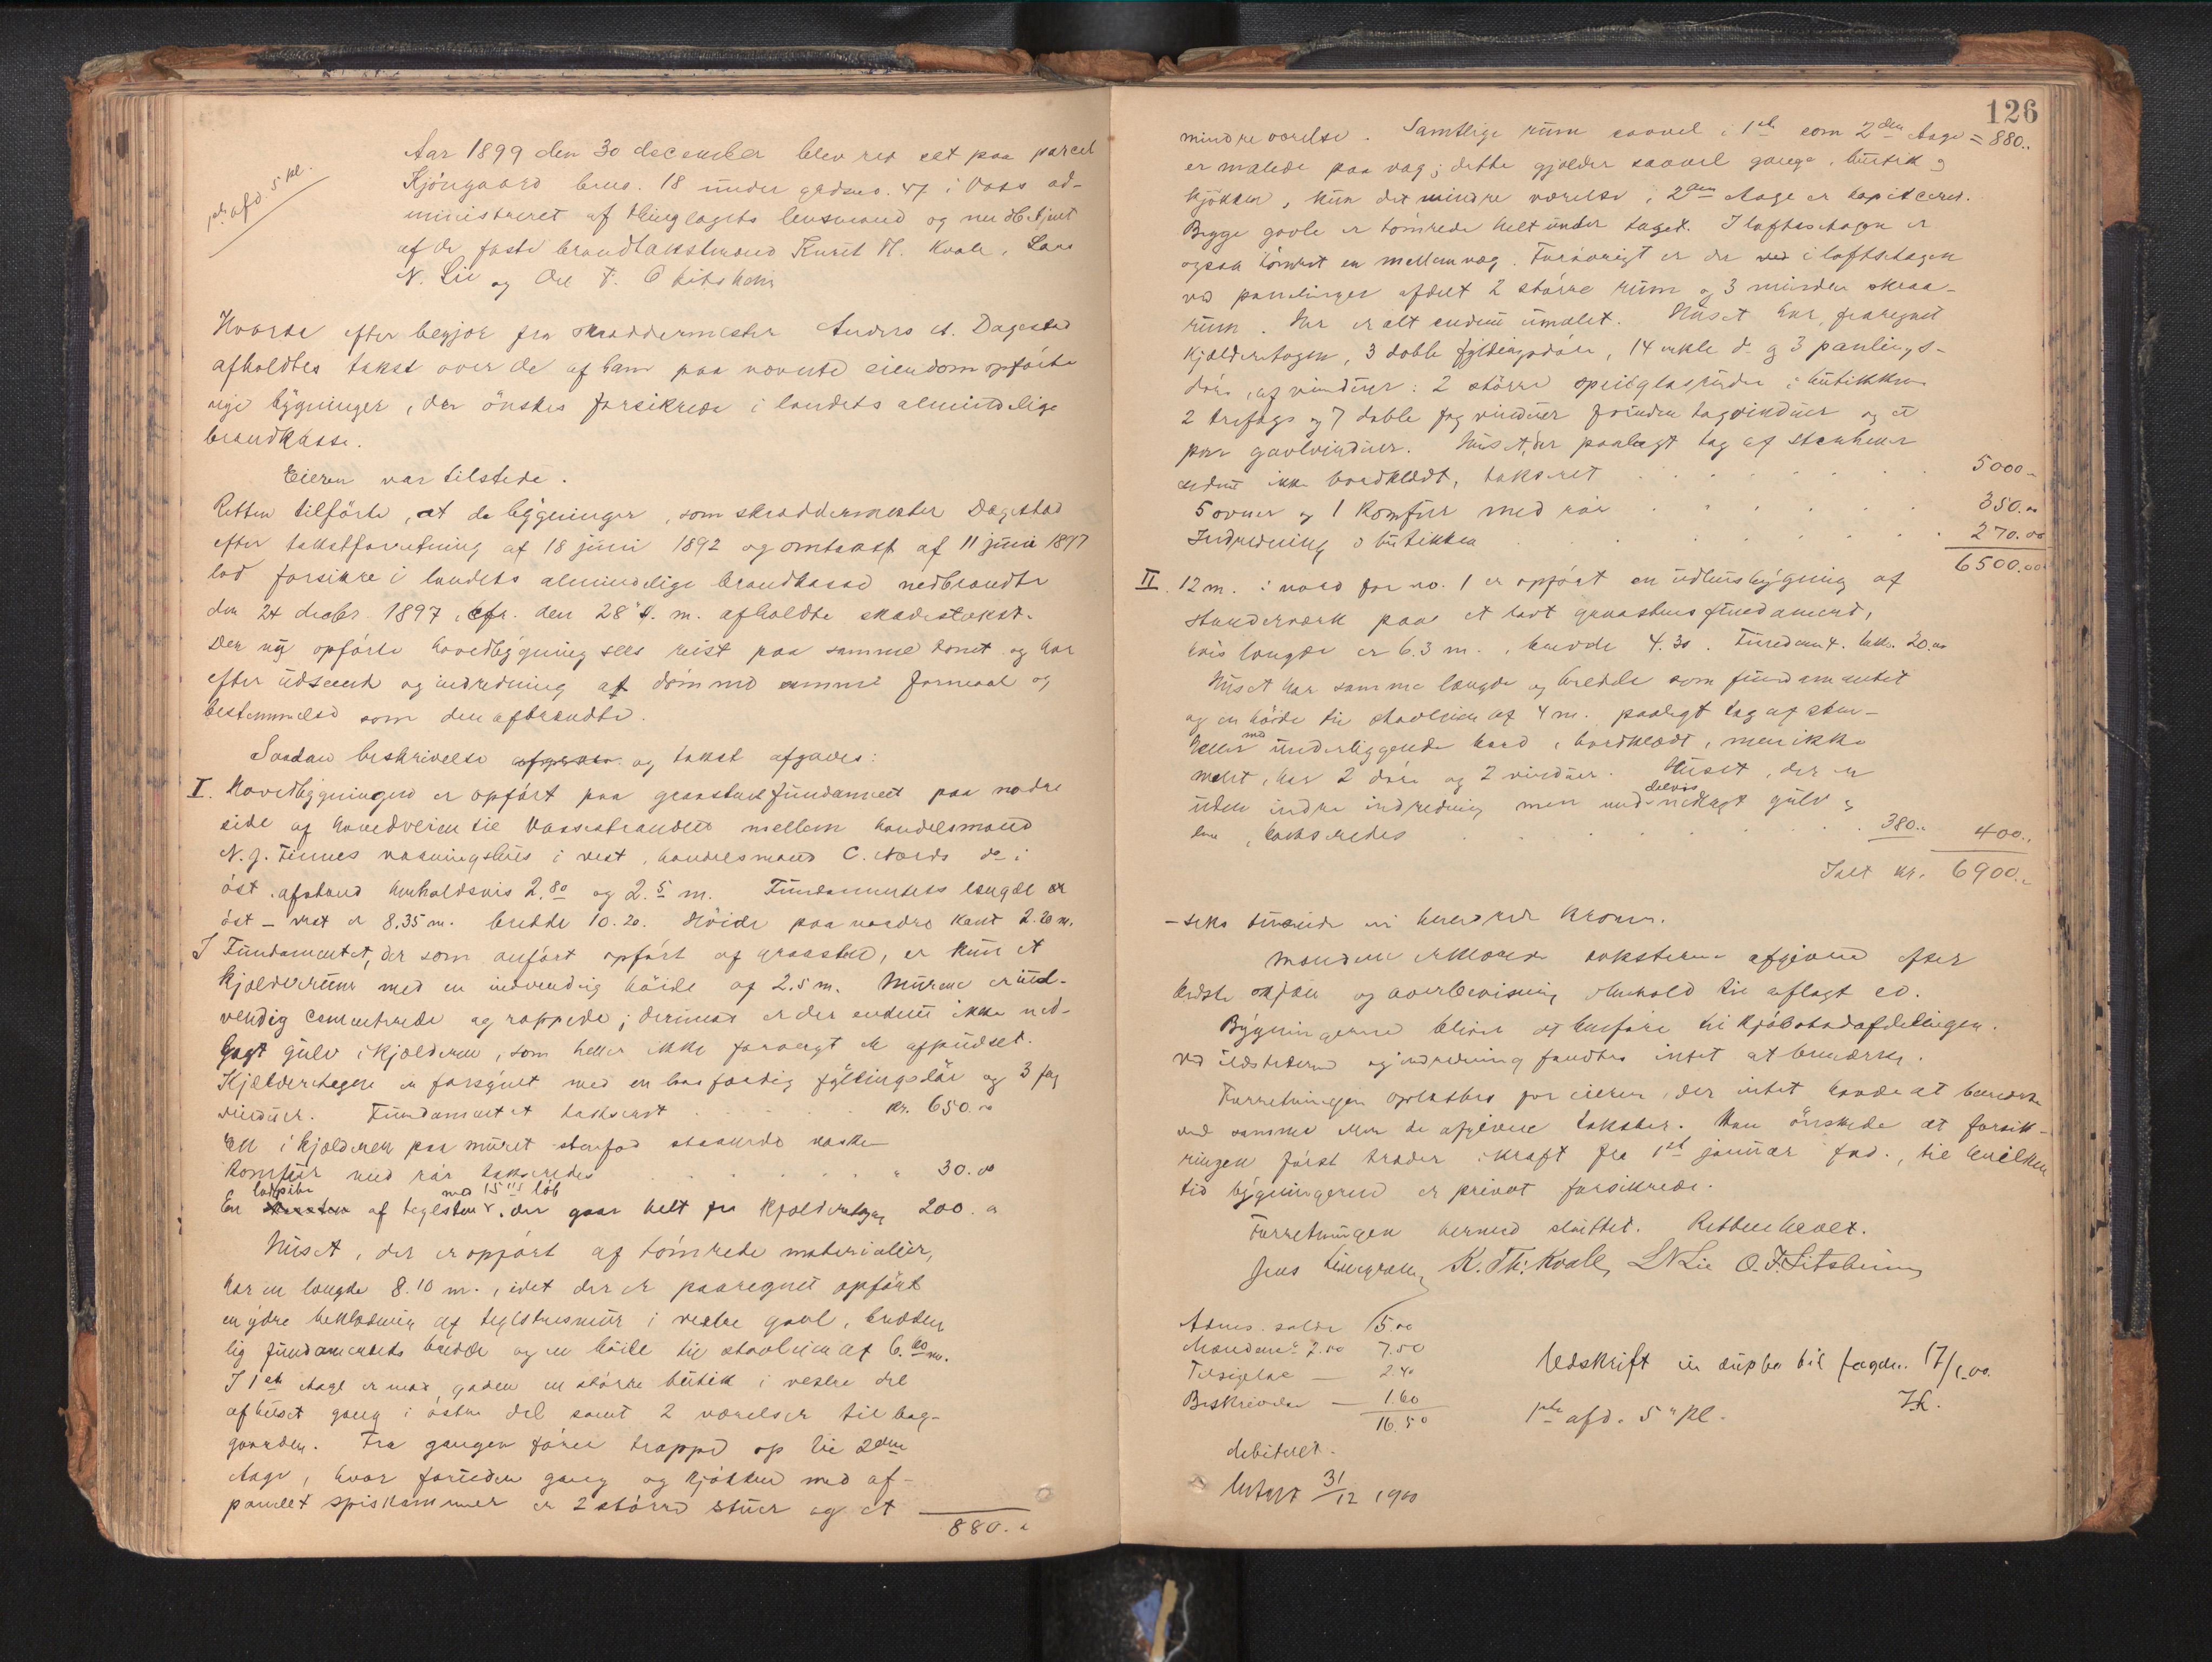 1ste afd. 5 kl.
Aar 1899 den 30 december blev ret sat paa parcel
Kjöngaard brno. 18 under gadsno. 47 i Voss ad-
ministreret af thinglagets lensmand og
af de faste brandtakstmænd Knut Th. Kvale, Lars
N. Lie og O. F. Sitsheim
Hvorda efter begjær fra skræddermester Anders A. Dagestad
afholdtes takst over de af ham paa nævnte eiendom opförte
nye bygninger, der önskes forsikrede i landets almindelige
brandkasse.
Eieren var tilstede.
Retten tilförte, at de bygninger, som skræddermester Dagestad
efter takstforretning af 18 juni 1892 og omtakst af 11 juni 1897
lod forsikre i landets almindelige brandkasse nedbrændte
den 24 decbr. 1897, cfr. den 28 s. m. afholdte skadestakst.
Den ny opförte hovedbygning sees reist paa samme tomt og har
efter udseende og indredning at dömme samme formaal og
bestemmelse som den afbrændte.
Saadan beskrivelse og takst afgaves:
I. Hovedbygningen er opfört paa graastensfundament paa nordre
side af hovedveien til Vossestranden mellem handelsmand
N. J. Finnes vaaningshus i vest, handelsmand C. Nords do i
öst. afstand henholdsvis 2.80 og 2.5 m. Fundamentets længde er
öst - vest er 8.35 m. bredde 10.20. Höide paa nordre kant 2.20 m.
I Fundamentet, der som anfört opfört af graasten, er kun et
kjælderrum med en indvendig höide af 2.5 m. Murene er ind-
vendig cementerede og rappede; derimod er der endnu ikke ned-
lagt gulv i kjælderen, som heller ikke forövrigt er afpudset.
Kjælderetagen er forsynet med en haa færdig fyldingsdör og 3 fag
vinduer. Fundamentet takseret . . . . kr. 650.00
En i kjælderen paa muret stenfod staaende vaske
komfur med rör takseredes . . . . " 30.00
ladpibe med 15''' löb
En af teglsten, der gaar helt fra kjælderetagen 200.00
Huset, der er opfört af tömrede materialier,
har en længde 8.10 m., idet der er paaregnet opfört
en ydre beklædning af teglstensmur i vestre gavl, bredden
lig fundamentets bredde og en höide til stavleien af 6.60 m.
I 1ste etage er mod gaden en större butik i vestre del
af huset gang i östre del samt 2 værelser til bag-
gaarden. Fra gangen förer trappe op til 2den
etage, hvor foruden gang og kjökken med af-
panelet spiskammer er 2 större stuer og et
880.00
126
mindre værelse. Samtlige rum saavel i 1ste som 2den etage = 880..
er malede paa væg; dette gjælder saavel gange, butik og
kjökken, kun det mindre værelse i 2den etage er tapitceret.
Begge gavle er tömrede helt under taget. I loftsetagen er
ogsaa tömret en mellemvæg. Forövrigt er der i loftsetagen
ved panelinger afdelt 2 större rum og 3 mindre skraa-
rum. Her er alt endnu umalet. Huset har, fraregnet
kjælderetagen, 3 doble fyldingsdöre, 14 enkle do og 3 panlings-
döre, af vinduer: 2 större speilglasruder i butikken
2 trefags og 7 doble fag vinduer foruden tagvinduer og et
par gavlvinduer. Huset, der paalagt tag af stenheller
endnu ikke bordklædt, takseret . . . . 5000 -
5 ovner og 1 komfur med rör . . . . 350.00
Indredning i butikken . . . . 270.00
6500.00
II. 12 m. i nord for no. 1 er opfört en udhusbygning af
stenderværk paa et lavt graastensfundament,
hvis længde er 6.3 m., bredde 4.30. Fundamt. taks. 20.00
Huset har samme længde og bredde som fundamentet
og en höide til stavleien af 4 m. paalagt tag af sten-
heller med underliggende bord, bordklædt, men ikke
malet, har 2 döre og 2 vinduer. Huset, der er
uden indre indredning men med delvis nedlagt gulv og
lem, takseredes . . . . 380.. 400..
Ialt kr. 6900..
- seks tusinde ni hundrede kroner.
Mændene erklærede taksterne afgivne efter
bedste skjön og overbevisning i henhold til aflagt ed.
Bygningerne bliver at henföre til kjöbstadafdelingen.
Ved ildstederne og indredning fandtes intet at bemærke.
Forretningen oplæstes for eieren, der intet havde at bemærke
ved samme eller de afgivne takster. Han önskede at forsik-
ringen först træder i kraft fra 1ste januar fkd., til hvilken
tid bygningerne er privat forsikrede.
Forretningen hermed sluttet. Retten hævet.
K. Th: Kvale, L N Lie O. F. Sitsheim
5.00
Mændene 2.50 7.50
2.40
Beskrivelse — 1.60
16.50
debiteret.
31/12 1900
Udskrift in dupla til fogden 17/1 00.
1ste afd. 5" kl.